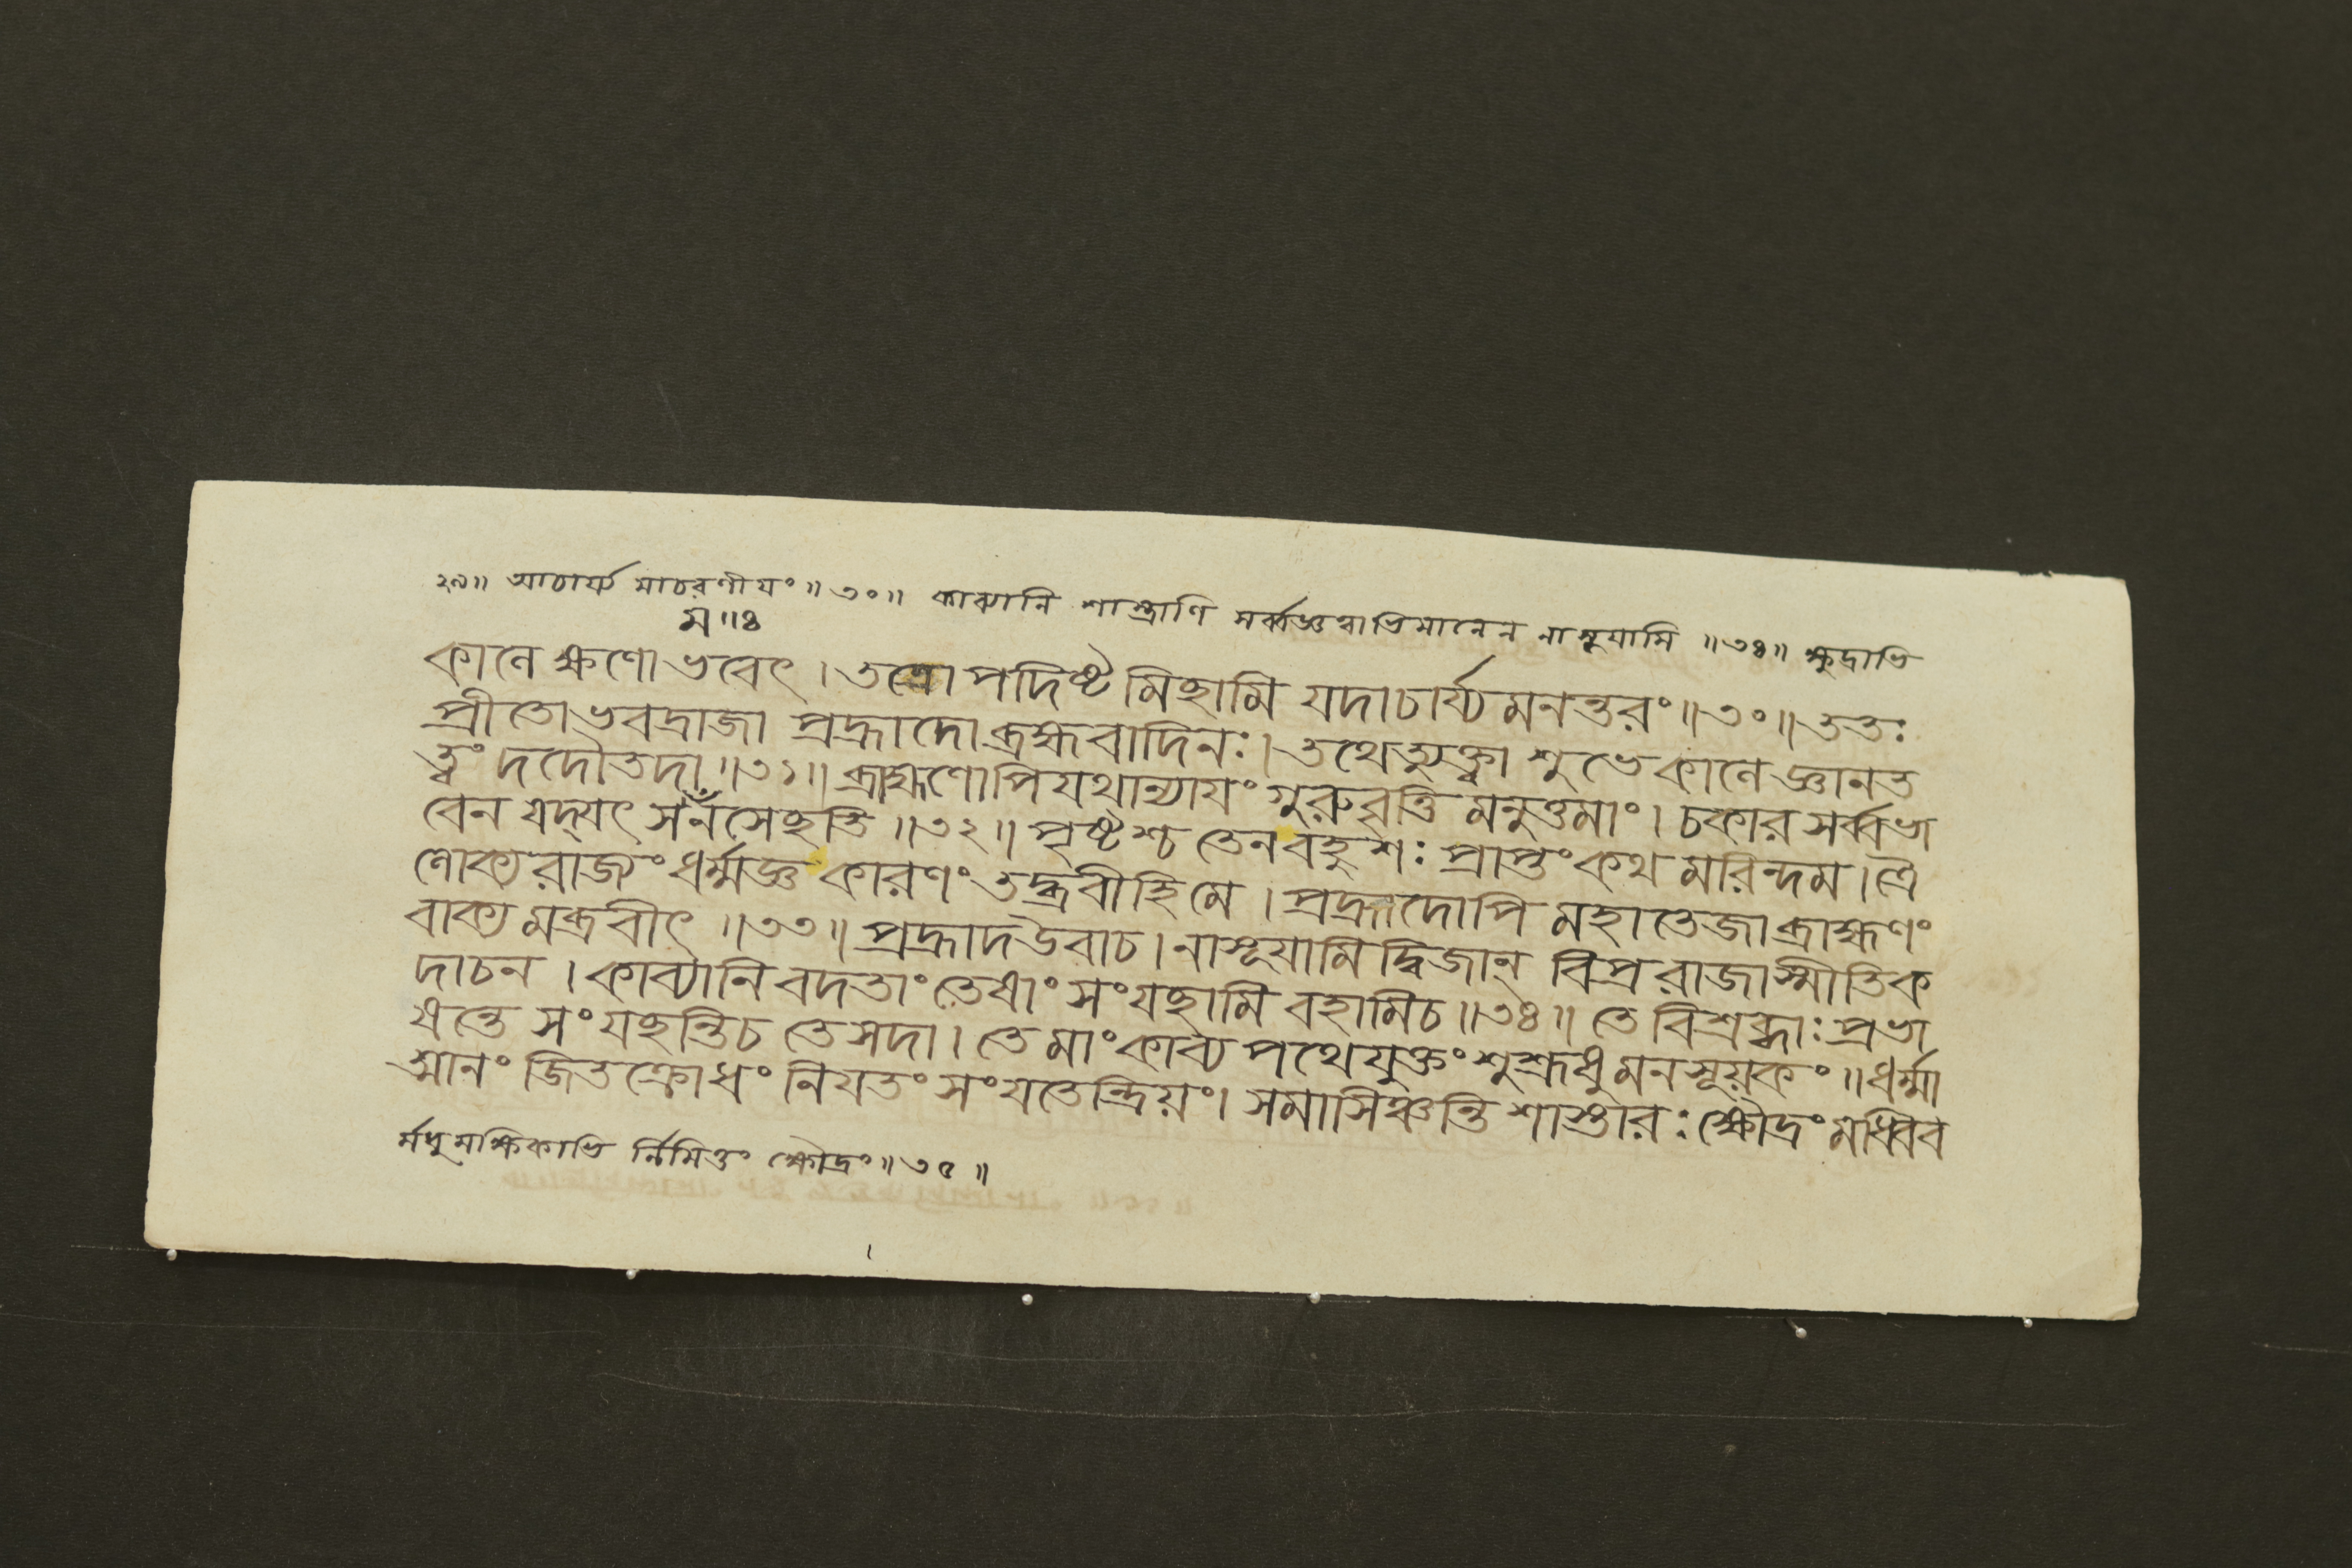 ২৯॥ আচার্য্য মাচরণীয়ং॥৩০॥ কাব্যানি শাস্ত্রাণি সর্ব্বজ্ঞত্বাভিমানেন নাসূয়ামি ॥৩৪॥ ক্ষুদ্রাভি
ম॥৪
কালে ক্ষণো ভবেৎ। তত্রোপদিষ্ট মিছামি যদাচার্য্যমনন্তরং॥৩০॥ ততঃ
প্রীতোভবদ্রাজা প্রহ্লাদো ব্রহ্মবাদিনঃ। তথেত্যুক্ত্বা শুভে কালে জ্ঞানত
ত্ত্বং দদৌ তদা॥৩১॥ ব্রাহ্মণোপি যথান্যায়ং গুরুবৃত্তি মনুত্তমাং। চকার সর্ব্বভা
বেন যদ্‌যৎ স মনসেছতি ॥৩২॥ পৃষ্টশ্চ তেন বহুশঃ প্রাপ্তং কথ মরিন্দম। ত্রৈ
লোক্য রাজ্যং ধর্ম্মজ্ঞ কারণং তদ্ব্রবীহি মে। প্রহ্লাদোপি মহাতেজা ব্রাহ্মণং
বাক্য মব্রবীৎ ॥৩৩॥ প্রহ্লাদ উবাচ। নাসূয়ামি দ্বিজান্ বিপ্র রাজাস্মীতি ক
দাচন। কাব্যানি বদতাং তেষাং সংযছামি বহামি চ॥৩৪॥ তে বিশ্রব্ধাঃ প্রভা
ষন্তে সংযছন্তি চ তে সদা। তে মাং কাব্য পথে যুক্তং শুশ্রূষু মনসূয়কং॥ ধর্ম্মা
ত্মানং জিতক্রোধং নিয়তং সংযতেন্দ্রিয়ং। সমাসিঞ্চন্তি শাস্তারঃ ক্ষৌদ্রং মধ্বিব
র্মধুমক্ষিকাভি র্নির্মিতং ক্ষৌদ্রং॥৩৫॥